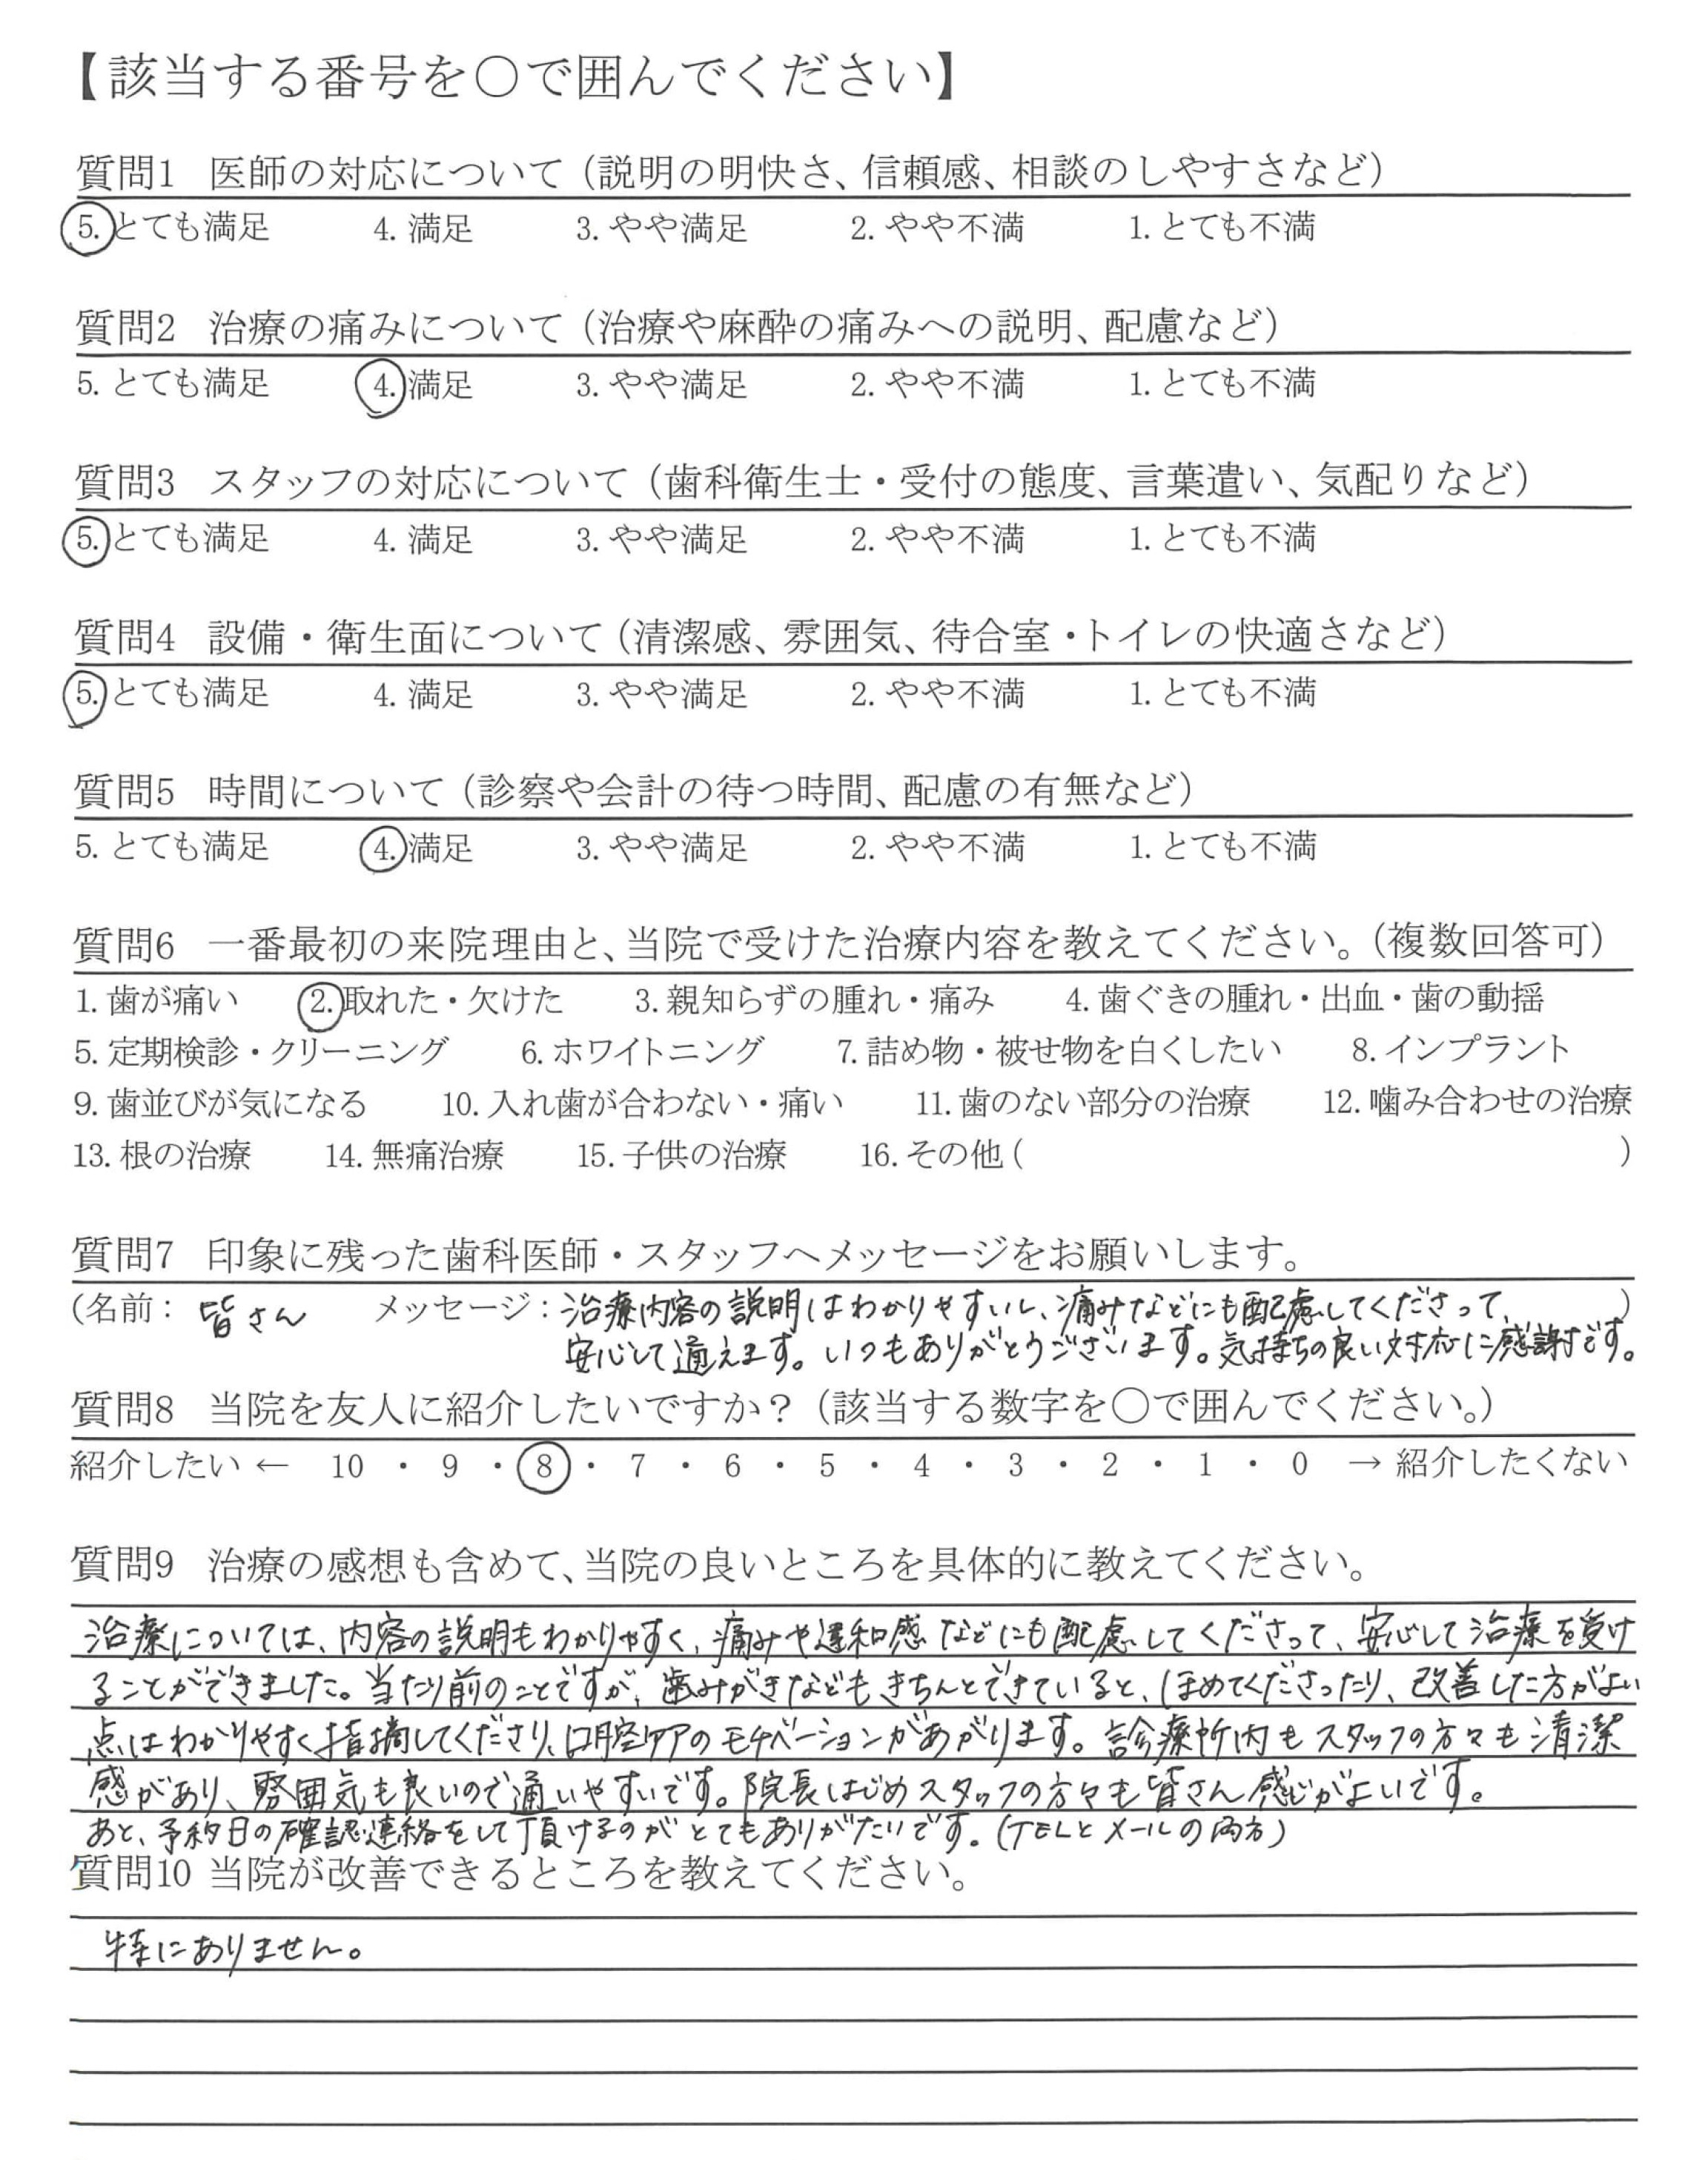 【該当する番号を〇で囲んでください】
質問1 医師の対応について（説明の明快さ、信頼感、相談のしやすさなど）
5. とても満足 4. 満足 3. やや満足 2. やや不満 1. とても不満
質問2 治療の痛みについて（治療や麻酔の痛みへの説明、配慮など）
5. とても満足 4. 満足 3. やや満足 2. やや不満 1. とても不満
質問3 スタッフの対応について（歯科衛生士・受付の態度、言葉遣い、気配りなど）
5. とても満足 4. 満足 3. やや満足 2. やや不満 1. とても不満
質問4 設備・衛生面について（清潔感、雰囲気、待合室・トイレの快適さなど）
5. とても満足 4. 満足 3. やや満足 2. やや不満 1. とても不満
質問5 時間について（診察や会計の待つ時間、配慮の有無など）
5. とても満足 4. 満足 3. やや満足 2. やや不満 1. とても不満
質問6 一番最初の来院理由と、当院で受けた治療内容を教えてください。（複数回答可）
1. 歯が痛い 2. 取れた・欠けた 3. 親知らずの腫れ・痛み 4. 歯ぐきの腫れ・出血・歯の動揺
5. 定期検診・クリーニング 6. ホワイトニング 7. 詰め物・被せ物を白くしたい 8. インプラント
9. 歯並びが気になる 10. 入れ歯が合わない・痛い 11. 歯のない部分の治療 12. 噛み合わせの治療
13. 根の治療 14. 無痛治療 15. 子供の治療 16. その他（ ）
質問7 印象に残った歯科医師・スタッフへメッセージをお願いします。
（名前： 皆さん メッセージ：治療内容の説明はわかりやすいし、痛みなどにも配慮してくださって、）
安心して通えます。いつもありがとうございます。気持ちの良い対応に感謝です。
質問8 当院を友人に紹介したいですか？（該当する数字を〇で囲んでください。）
紹介したい ← 10 ・ 9 ・ 8 ・ 7 ・ 6 ・ 5 ・ 4 ・ 3 ・ 2 ・ 1 ・ 0 → 紹介したくない
質問9 治療の感想も含めて、当院の良いところを具体的に教えてください。
治療については、内容の説明もわかりやすく、痛みや違和感などにも配慮してくださって、安心して治療を受け
ることができました。当たり前のことですが、歯みがきなどもきちんとできていると、ほめてくださったり、改善した方がよい
点はわかりやすく指摘してくださり、口腔ケアのモチベーションがあがります。診療所内もスタッフの方々も清潔
感があり、雰囲気も良いので通いやすいです。院長はじめスタッフの方々も皆さん感じがよいです。
あと、予約日の確認連絡をして頂けるのがとてもありがたいです。（TELとメールの両方）
質問10 当院が改善できるところを教えてください。
特にありません。